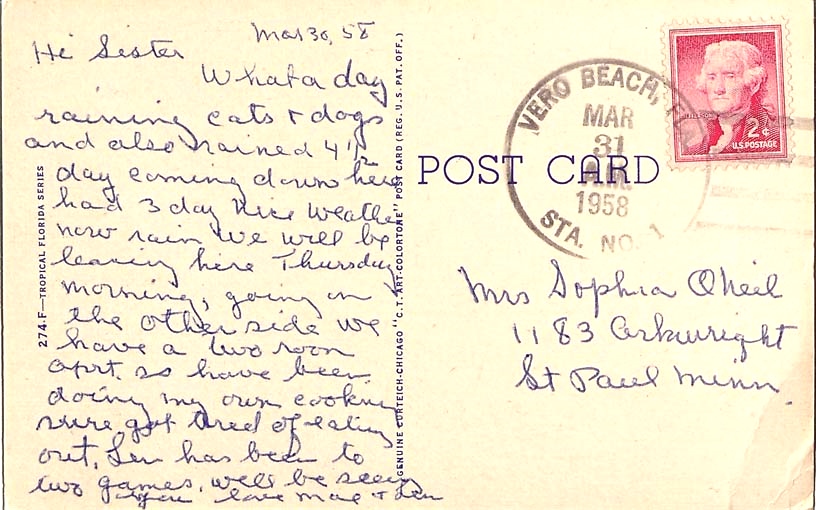 Mar 30, 58
Hi Sister
What a day
raining cats + dogs
and also rained 4th
day coming down here
had 3 day nice weather
now rain we will be
leaving here Thursday
morning, going on
the other side we
have a two room
aprt. so have been
doing my own cooking
sure got tired of eating
out, Len has been to
two games. we'll be seeing
you love Mae + Len
274.F—TROPICAL FLORIDA SERIES
GENUINE CURTEICH-CHICAGO "C.T. ART-COLORTONE" POST CARD (REG. U.S. PAT. OFF.)
POST CARD
VERO BEACH, FLA
MAR
31
A.M.
1958
STA. NO. 1
JEFFERSON
2¢
U.S. POSTAGE
Mrs Sophia ONeil
1183 Arkwright
St Paul Minn.